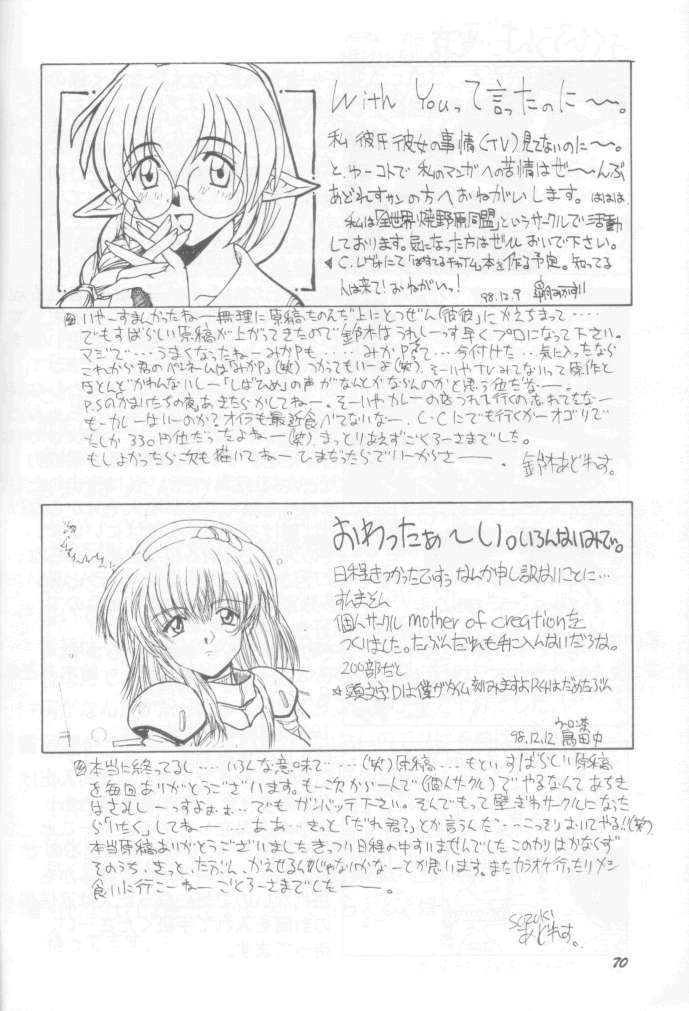 With Youって言ったのに〜。
私 彼氏彼女の事情(TV)見てないのに〜。
と、ゆーコトで 私のマンガへの苦情はぜ〜んぶ
あどれすサンの方へおねがいします。ははは、
私は「全世界焼野原同盟」というサークルで活動
しております。気になった方はぜひおいで下さい。
人は来て!おねがいっ!
98.12.9
いやーすまんかったねー無理に原稿たのんだ上にとつぜん(彼彼)にかえちまって‥‥
でもすばらしい原稿が上がってきたので鈴木はうれしーっす早くプロになって下さい。
マジで‥‥うまくなったねーみかPも‥‥みかPって‥‥今付けた‥‥気に入ったなら
これから君のペンネームは「みかP」(笑)つかってもいーよ(笑)。そーいやTVみてないって原作と
ほとんどかわんないしー「しばひめ」の声がなんとかならんのかと思う位だなー。
P.Sのかまいたちの夜あきたらかしてねー。そーいやカレーの店つれて行くの忘れてたなー
もーカレーはいーのか?オイラも最近食べてないなー、C・Cにでも行くかーオゴリで
たしか330円位だったよねー(笑)。まっとりあえずごくろーさまでした。
もしよかったら次も描いてねー ひまだったらでいーからさー——。
鈴木あどれす。
おわったぁ〜い。いろんないみで。
日程きつかったですぅ なんか申し訳ないことに…
すんません
個人サークル mother of creationを
つくりました。たぶんだれも手に入んないだろな。
200部だし
98.12.12
本当に終ってるし‥‥いろんな意味で‥‥(笑)原稿‥‥もといすばらしい原稿
を毎回ありがとうございます。もー次から一人で(個人サークル)でやるなんてあちき
はさみしーっすよぉぉぉ…でも ガンバッテ下さい。そんでもって壁ぎわサークルになった
ら「いたく」してねー‥‥ああ‥きっと「だれ君?」とか言うんだ‥‥こっそりおいてやる!!(笑)
本当原稿ありがとうございましたきっつい日程の中すいませんでしたこのかりはかなくず
そのうち、きっと、たぶん、かえせるんじゃないかなーとか思います。またカラオケ行ったりメシ
食いに行こーねー ごくろーさまでしたー——。
suzuki
あどれす。
70